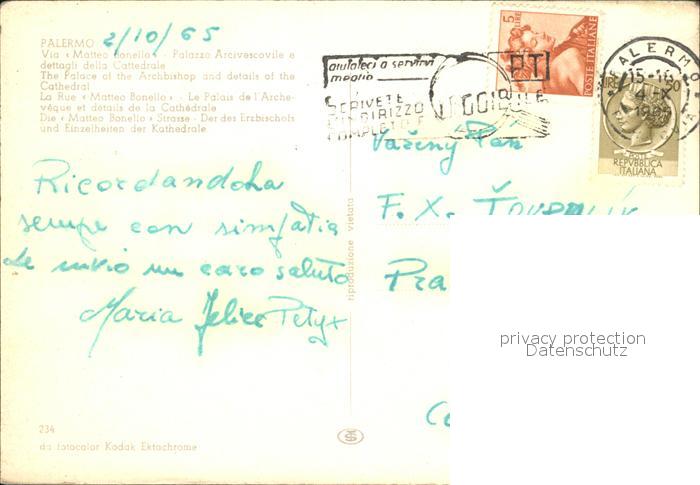 PALERMO 2/10/65
Via « Matteo Bonello » - Palazzo Arcivescovile e
dettagli della Cattedrale
The Palace of the Archbishop and details of the
Cathedral
La Rue « Matteo Bonello » - Le Palais de l'Arche-
vêque et détails de la Cathédrale
Die « Matteo Bonello » Strasse - Der des Erzbischofs
und Einzelheiten der Kathedrale
aiutateci a servirvi
meglio
SCRIVETE
INDIRIZZO
COMPLETO E LEGGIBILE
PT
5 LIRE
POSTE ITALIANE
PALERMO
15-16
REPVBBLICA
ITALIANA
Ricordandola
sempre con simpatia
Le invio un caro saluto
Maria Felice Petyx
riproduzione vietata
Vážený Pán
F. X.
Pra
privacy protection
Datenschutz
234
da fotocolor Kodak Ektachrome